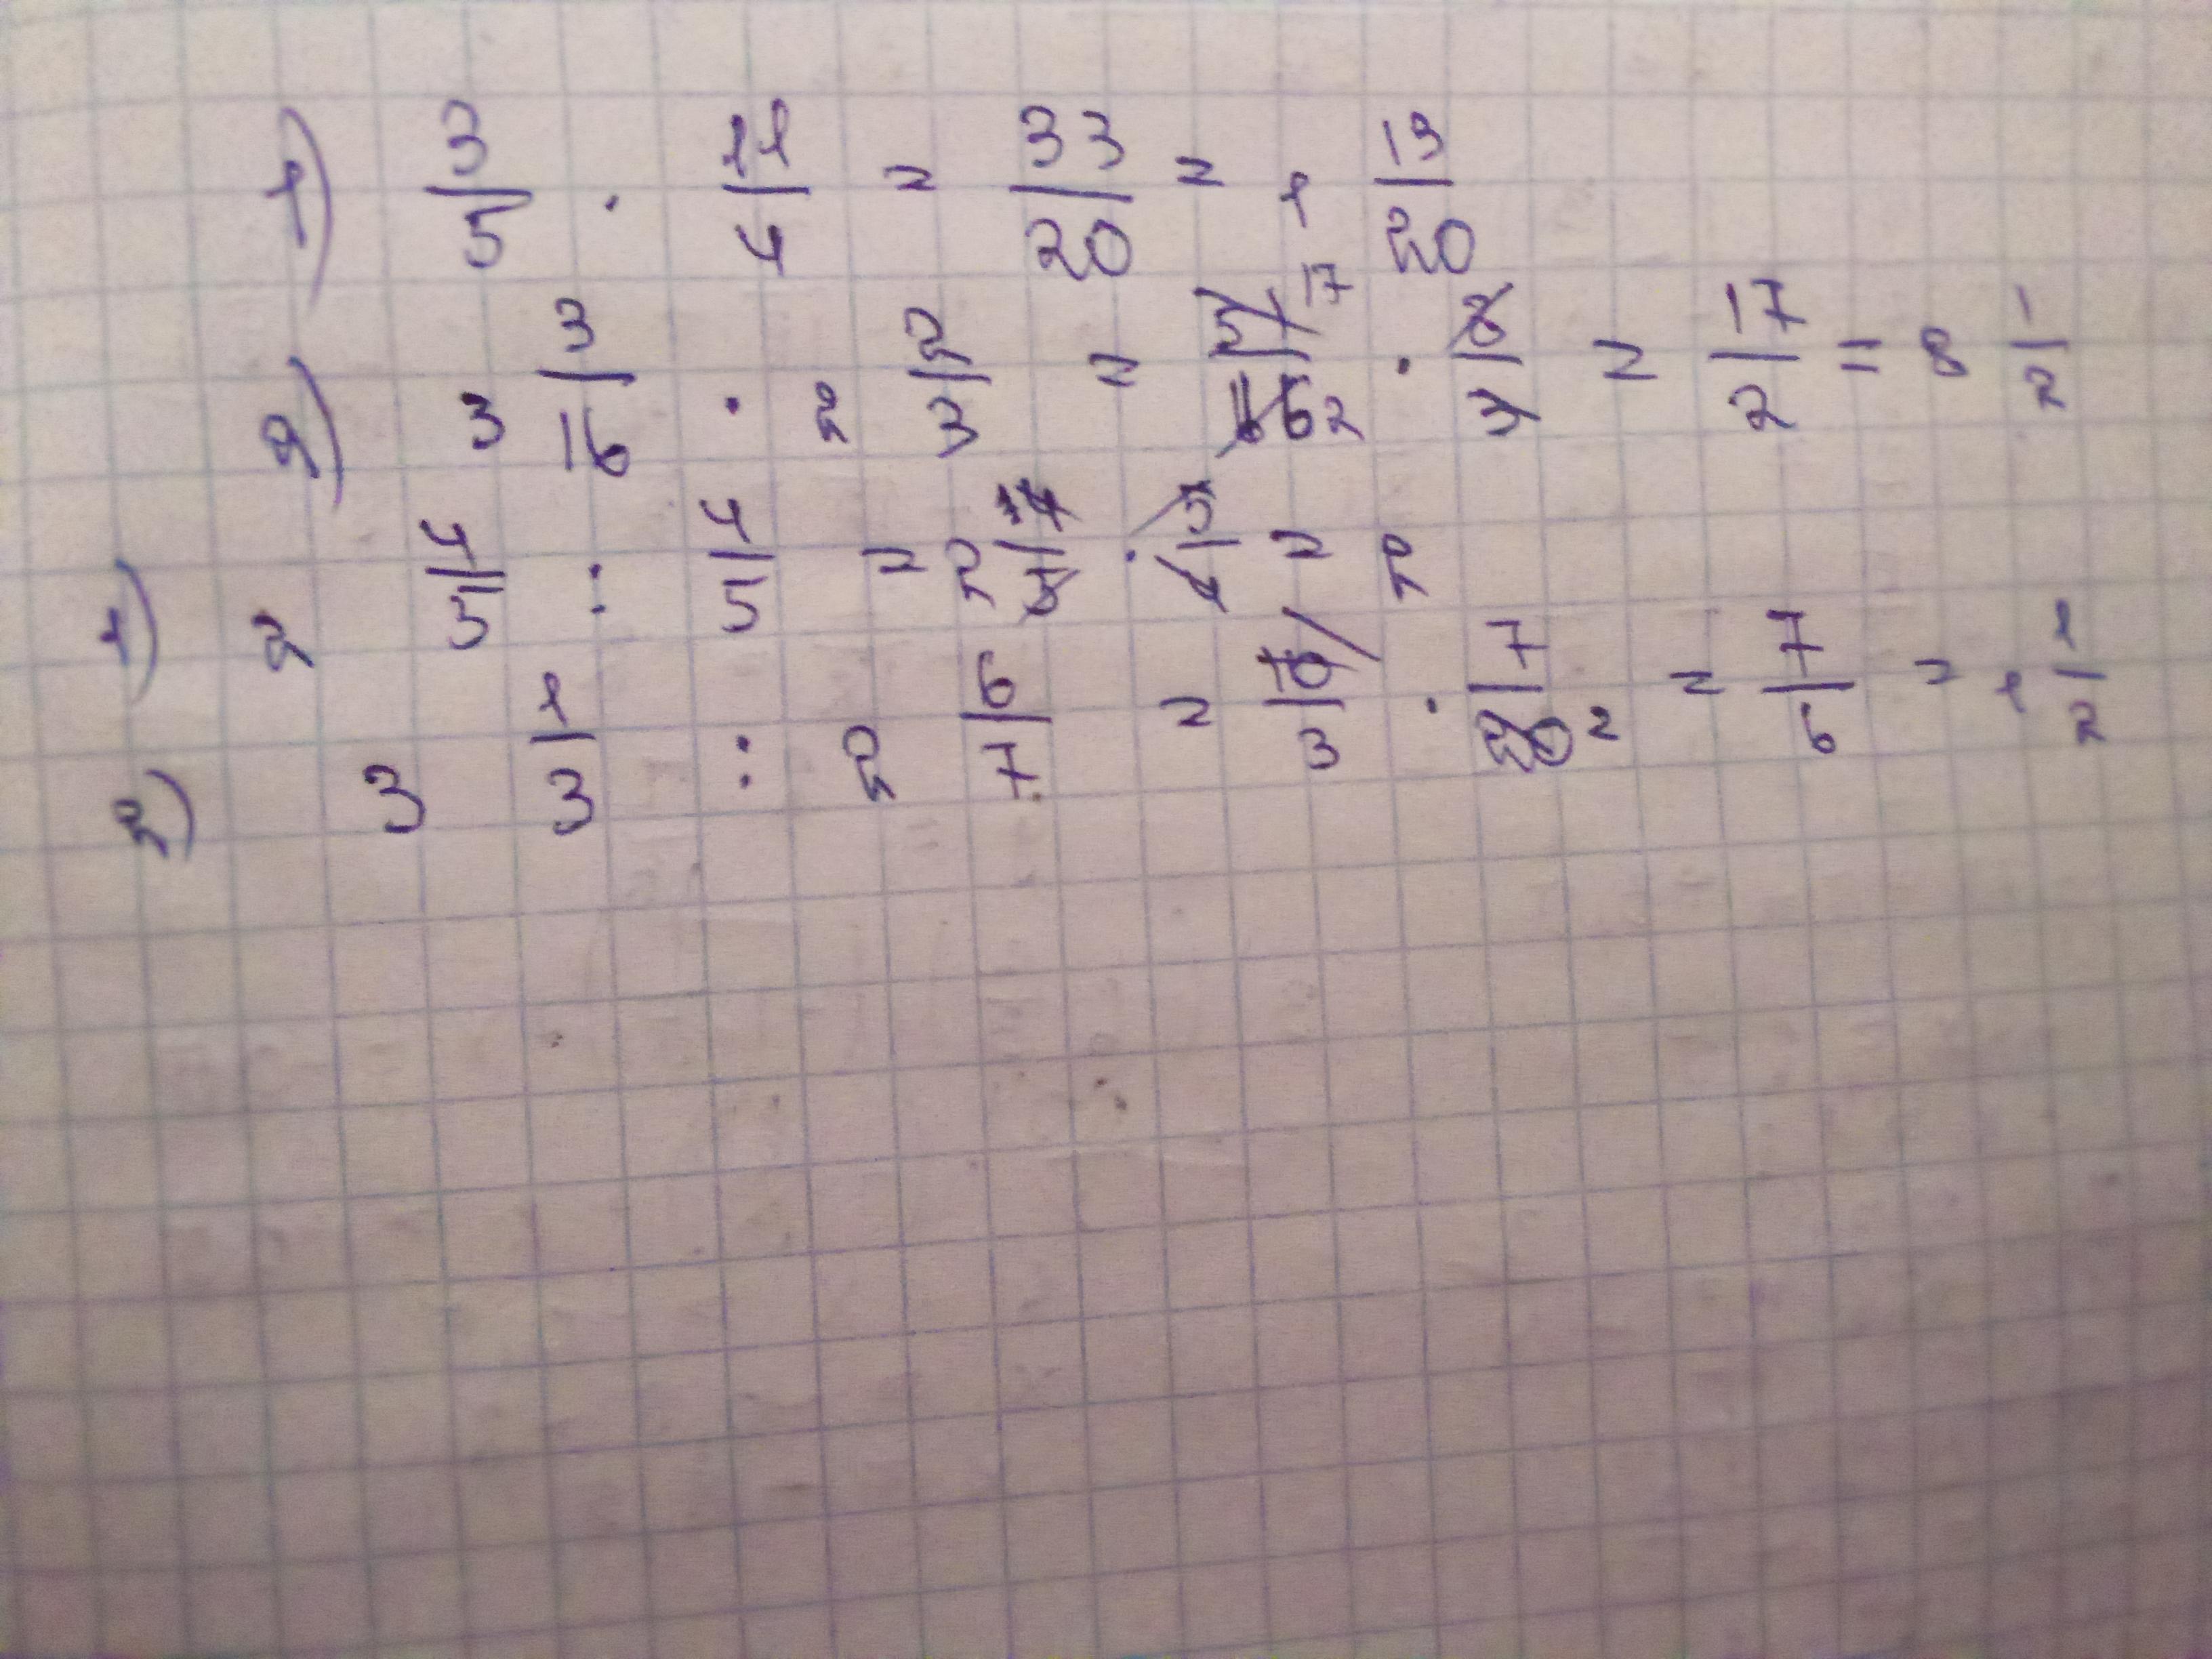 1) 3/5 · 11/4 = 33/20 = 1 13/20
2) 3 3/16 · 2 2/3 = 51/16 17 2 · 8/3 = 17/2 = 8 1/2
1) 2 4/5 : 4/5 = 2 14/5 · 5/4 = 2
2) 3 1/3 : 2 6/7 = 10/3 · 7/20 2 = 7/6 = 1 1/2